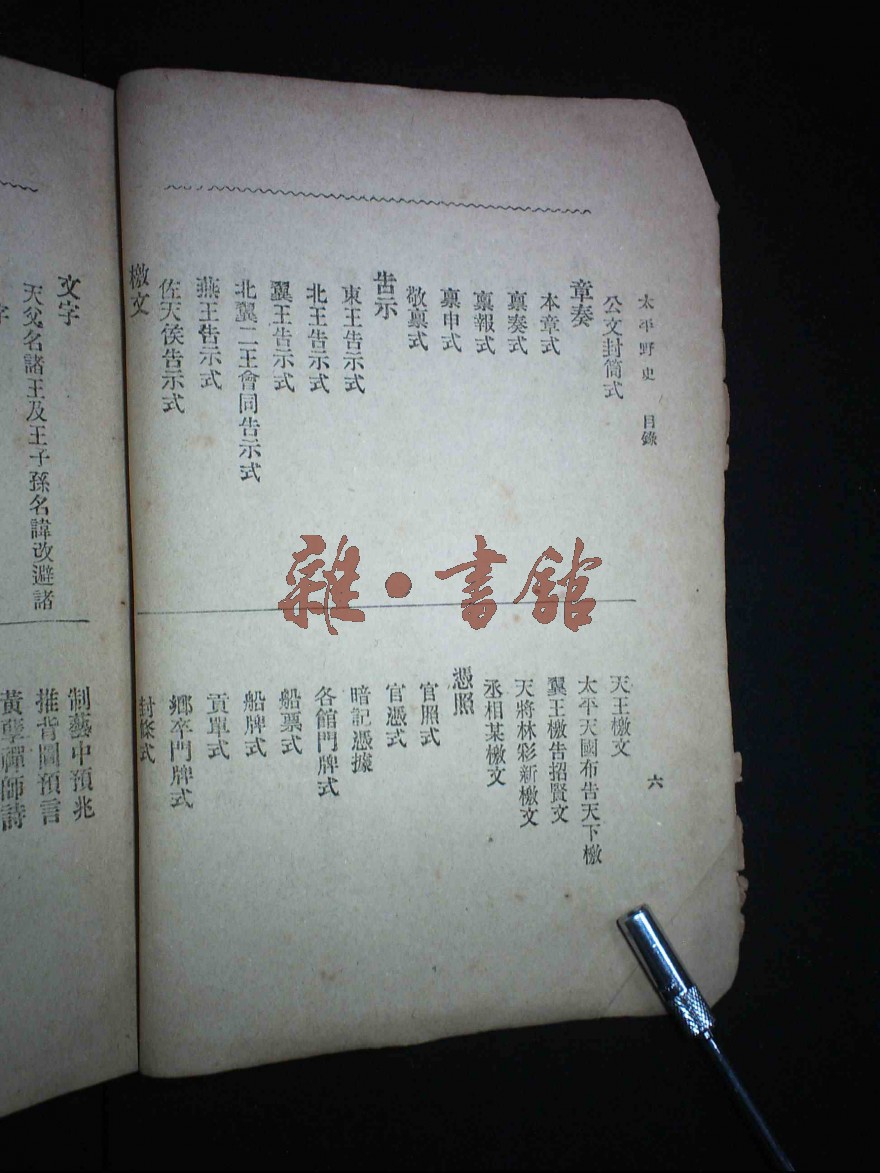 太平野史 目錄
六
公文封筒式
章奏
本章式
禀奏式
禀報式
禀申式
敬禀式
告示
東王告示式
北王告示式
翼王告示式
北翼二王會同告示式
燕王告示式
佐天侯告示式
檄文
天王檄文
太平天國布告天下檄
翼王檄告招賢文
天將林彩新檄文
丞相某檄文
憑照
官照式
官憑式
暗記憑據
各館門牌式
船票式
船牌式
貢單式
鄉卒門牌式
封條式
文字
天父名諸王及王子孫名諱改避諸
字
制藝中預兆
推背圖預言
黃孽禪師詩
雜·書館